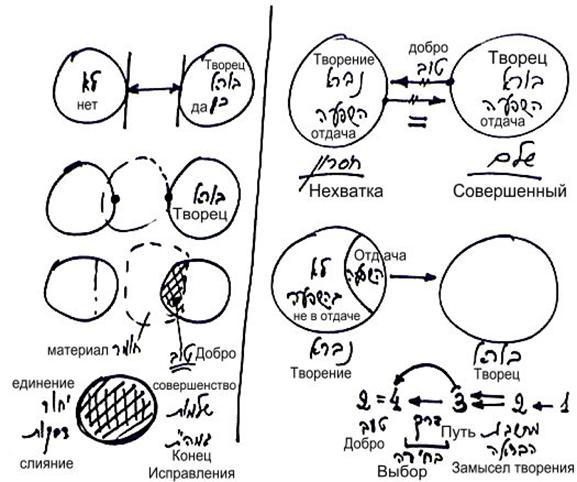 Творец
לא בורא
нет да כן
בורא
Творец
материал חומר טוב Добро
единение совершенство
יחוד שלמות
דבקות גמה"ת
слияние Конец
Исправления
добро
Творение טוב Творец
נברא בורא
השפעה = השפעה
отдача отдача
חסרון שלם
Нехватка Совершенный
Отдача
לא השפעה
בהשפעה
не в отдаче
נברא בורא
Творение Творец
2 = 4 ← 3 ← 2 ← 1
טוב דרך Путь מחשבת
Добро בחירה הבריאה
Выбор Замысел творения